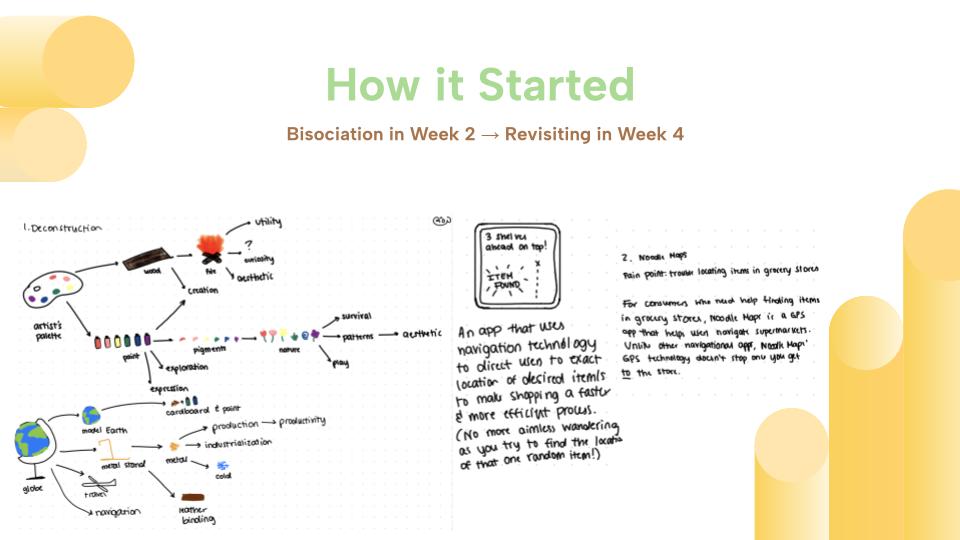 How it Started
Bisociation in Week 2 → Revisiting in Week 4
1. Deconstruction
utility
?
curiosity
aesthetic
wood
fire
creation
artist's
palette
paint
pigments
nature
survival
patterns
aesthetic
play
exploration
expression
cardboard & paint
model Earth
production
productivity
industrialization
metal stand
metal
cold
globe
travel
navigation
leather
binding
3 shelves
ahead on top!
x
ITEM
FOUND
An app that uses
navigation technology
to direct user to exact
location of desired item/s
to make shopping a faster
& more efficient process.
(No more aimless wandering
as you try to find the location
of that one random item!)
2. Noodle Maps
Pain point: trouble locating items in grocery stores
For consumers who need help finding items
in grocery stores, Noodle Maps is a GPS
app that helps users navigate supermarkets.
Unlike other navigational apps, Noodle Maps'
GPS technology doesn't stop once you get
to the store.